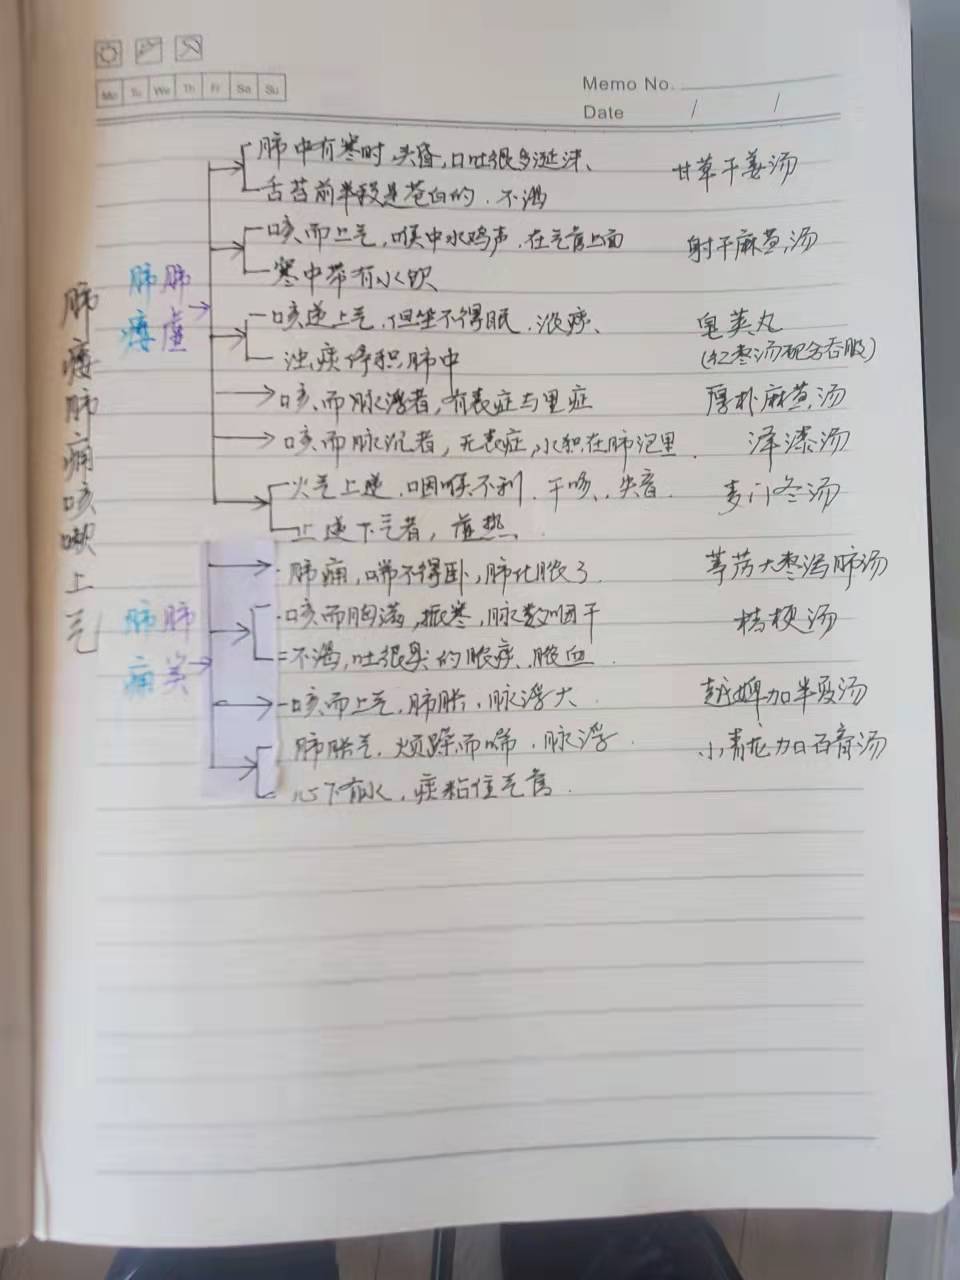 Mo Tu We Th Fr Sa Su
Memo No.
Date / /
肺痿肺痈咳嗽上气
肺痿
肺虚
肺中有寒时,头昏,口吐很多涎沫、
舌苔前半段是苍白的.不渴
甘草干姜汤
咳而上气,喉中水鸡声.在气管上面
寒中带有水饮
射干麻黄汤
咳逆上气,但坐不得眠.浓痰、
浊痰停积肺中
皂荚丸
(红枣汤配合吞服)
咳而脉浮者,有表症与里症
厚朴麻黄汤
咳而脉沉者,无表症,水积在肺泡里.
泽漆汤
火气上逆.咽喉不利.干咳、失音.
止逆下气者,虚热.
麦门冬汤
肺痈
肺实
肺痈,喘不得卧,肺化脓了.
葶苈大枣泻肺汤
咳而胸满,振寒,脉数咽干
不渴,吐很臭的脓痰、脓血.
桔梗汤
咳而上气.肺胀.脉浮大.
越婢加半夏汤
肺胀气.烦躁而喘.脉浮.
心下有水,痰粘住气管.
小青龙加石膏汤